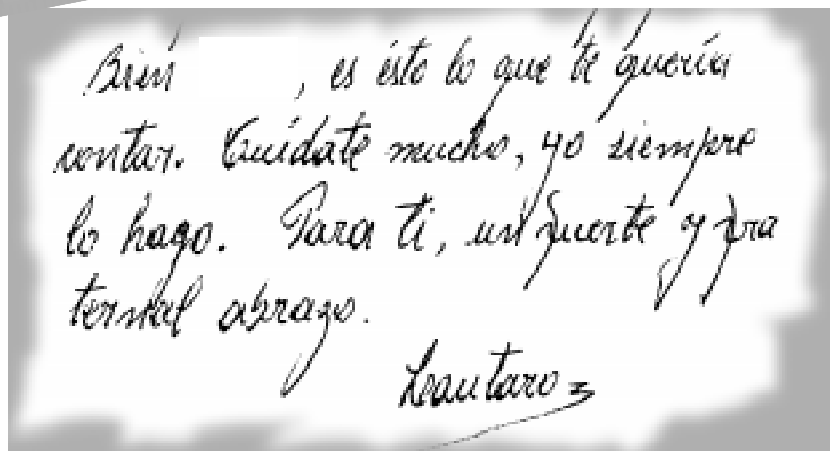 Bién , es ésto lo que te quería
contar. Cuídate mucho, yo siempre
lo hago. Para ti, un fuerte y fra
ternal abrazo.
Leautaro